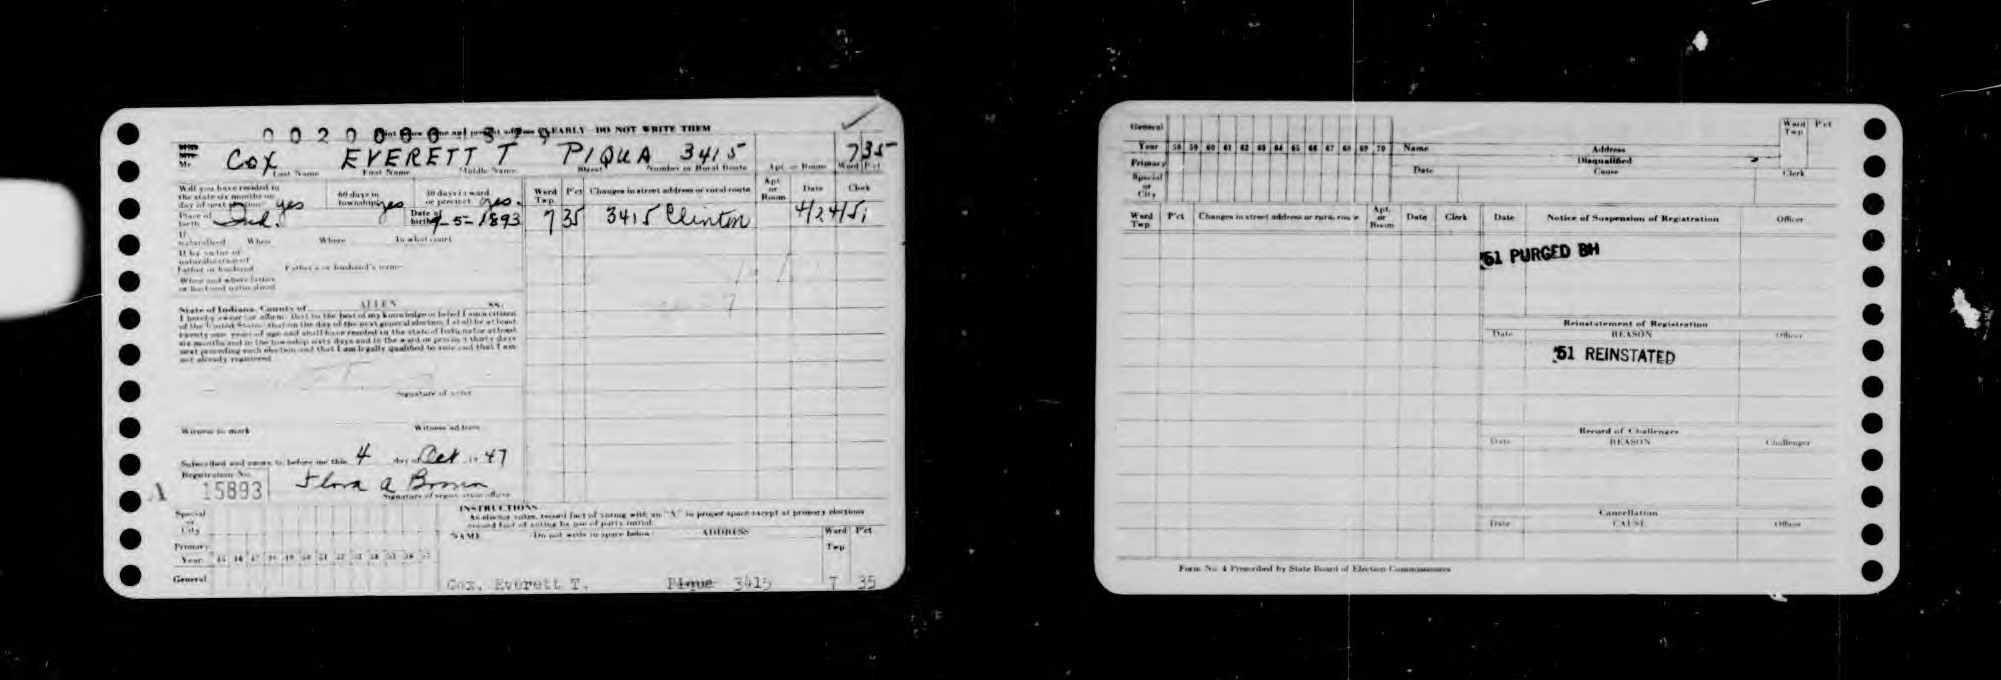 0020000 329
Print your name and present address CLEARLY—DO NOT WRITE THEM
Mr. COX EVERETT T PIQUA 3415 7 35
Last Name First Name Middle Name Street Number or Rural Route Apt. or Room Ward P'ct
Will you have resided in the state six months on day of next election? yes
60 days in township? yes
30 days in ward or precinct? yes.
Place of birth Ind. Date of birth 9-5-1893
If naturalized When Where In what court
If by virtue of naturalization of Father or husband Father's or husband's name
When and where father or husband naturalized
State of Indiana, County of ALLEN ss:
I hereby swear (or affirm) that to the best of my knowledge or belief I am a citizen
of the United States; that on the day of the next general election, I shall be at least
twenty-one years of age and shall have resided in the state of Indiana for at least
six months and in the township sixty days and in the ward or precinct thirty days
next preceding such election and that I am legally qualified to vote and that I am
not already registered.
Signature of voter
Witness to mark Witness address
Subscribed and sworn to before me this 4 day of Oct 1947
Registration No.
A 15893 Flora A Brown
Signature of registration officer
Ward Twp. P'ct Changes in street address or rural route Apt. or Room Date Clerk
7 35 3415 Clinton 4/24/51
Special or City
Primary
Year
General
INSTRUCTIONS
As elector votes, record fact of voting with an "X" in proper space except at primary elections
record fact of voting by use of party initial.
NAME Do not write in space below ADDRESS Ward Twp. P'ct
Cox, Everett T. Pique 3415 7 35
General
Year 58 59 60 61 62 63 64 65 66 67 68 69 70
Primary
Special or City
Name Address Ward Twp. P'ct
Disqualified
Date Cause Clerk
Ward Twp. P'ct Changes in street address or rural route Apt. or Room Date Clerk
Date Notice of Suspension of Registration Officer
'51 PURGED BH
Reinstatement of Registration
Date REASON Officer
'51 REINSTATED
Record of Challenges
Date REASON Challenger
Cancellation
Date CAUSE Officer
Form No. 4 Prescribed by State Board of Election Commissioners